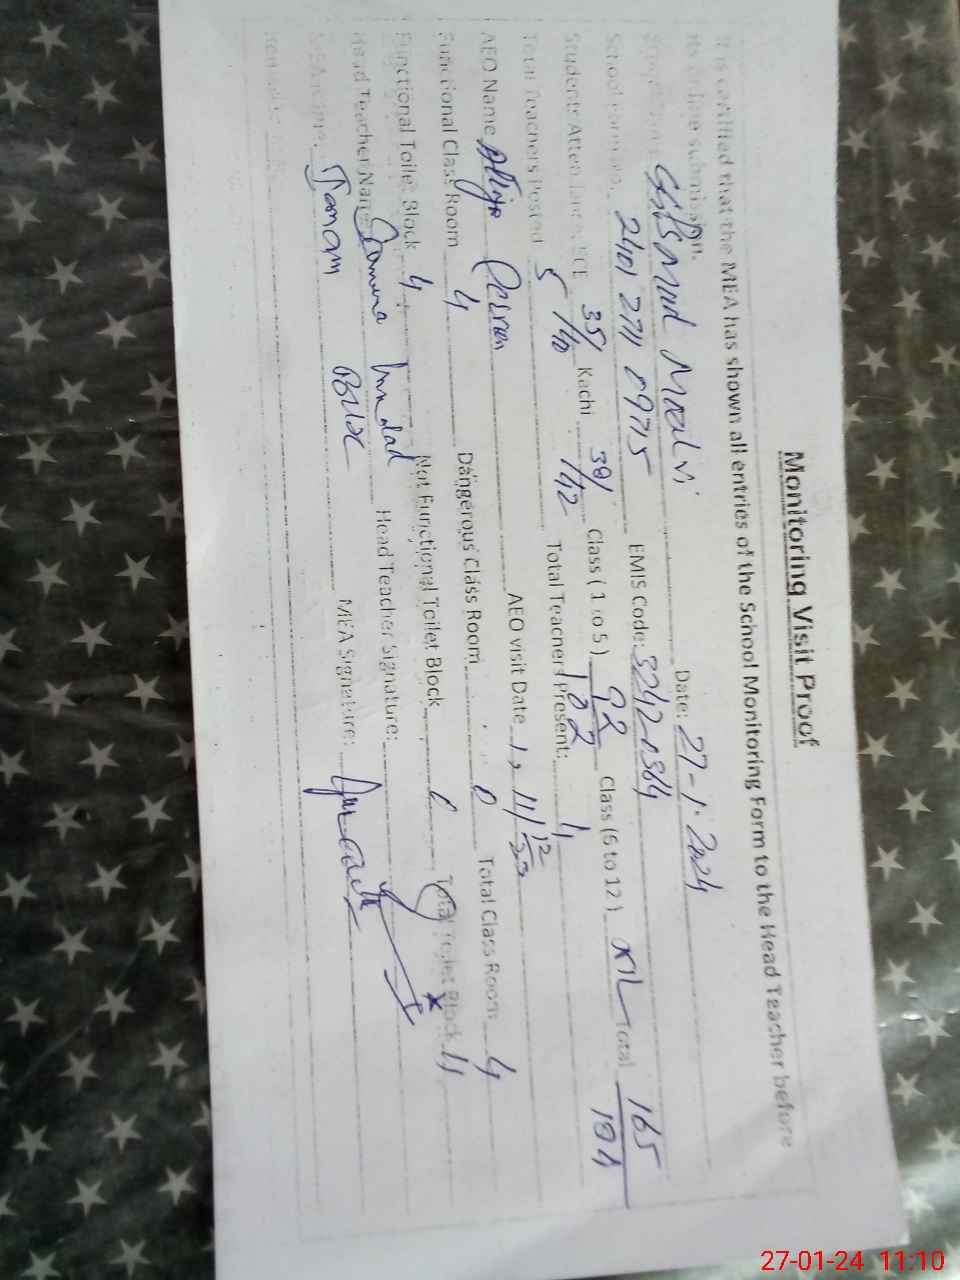 Monitoring Visit Proof
It is certified that the MEA has shown all entries of the School Monitoring Form to the Head Teacher before
its online submission.
Date: 27-1-2024
School Formno. 2401 2711 09715 EMIS Code: 32420364
Students Attendance: ECE 35/40 Kachi 38/42 Class ( 1 to 5 ) 92/102 Class (6 to 12 ) NIL Total 165/184
Total Teachers Posted 5 Total Teachers Present: 4
AEO Name AEO visit Date 11/12/23
Functional Class Room 4 Dangerous Class Room 0 Total Class Room 4
Functional Toilet Block 4 Not Functional Toilet Block Total Toilet Block 4
Head Teacher Name Head Teacher Signature:
MEA Name: Imam Bux MEA Signature:
27-01-24 11:10